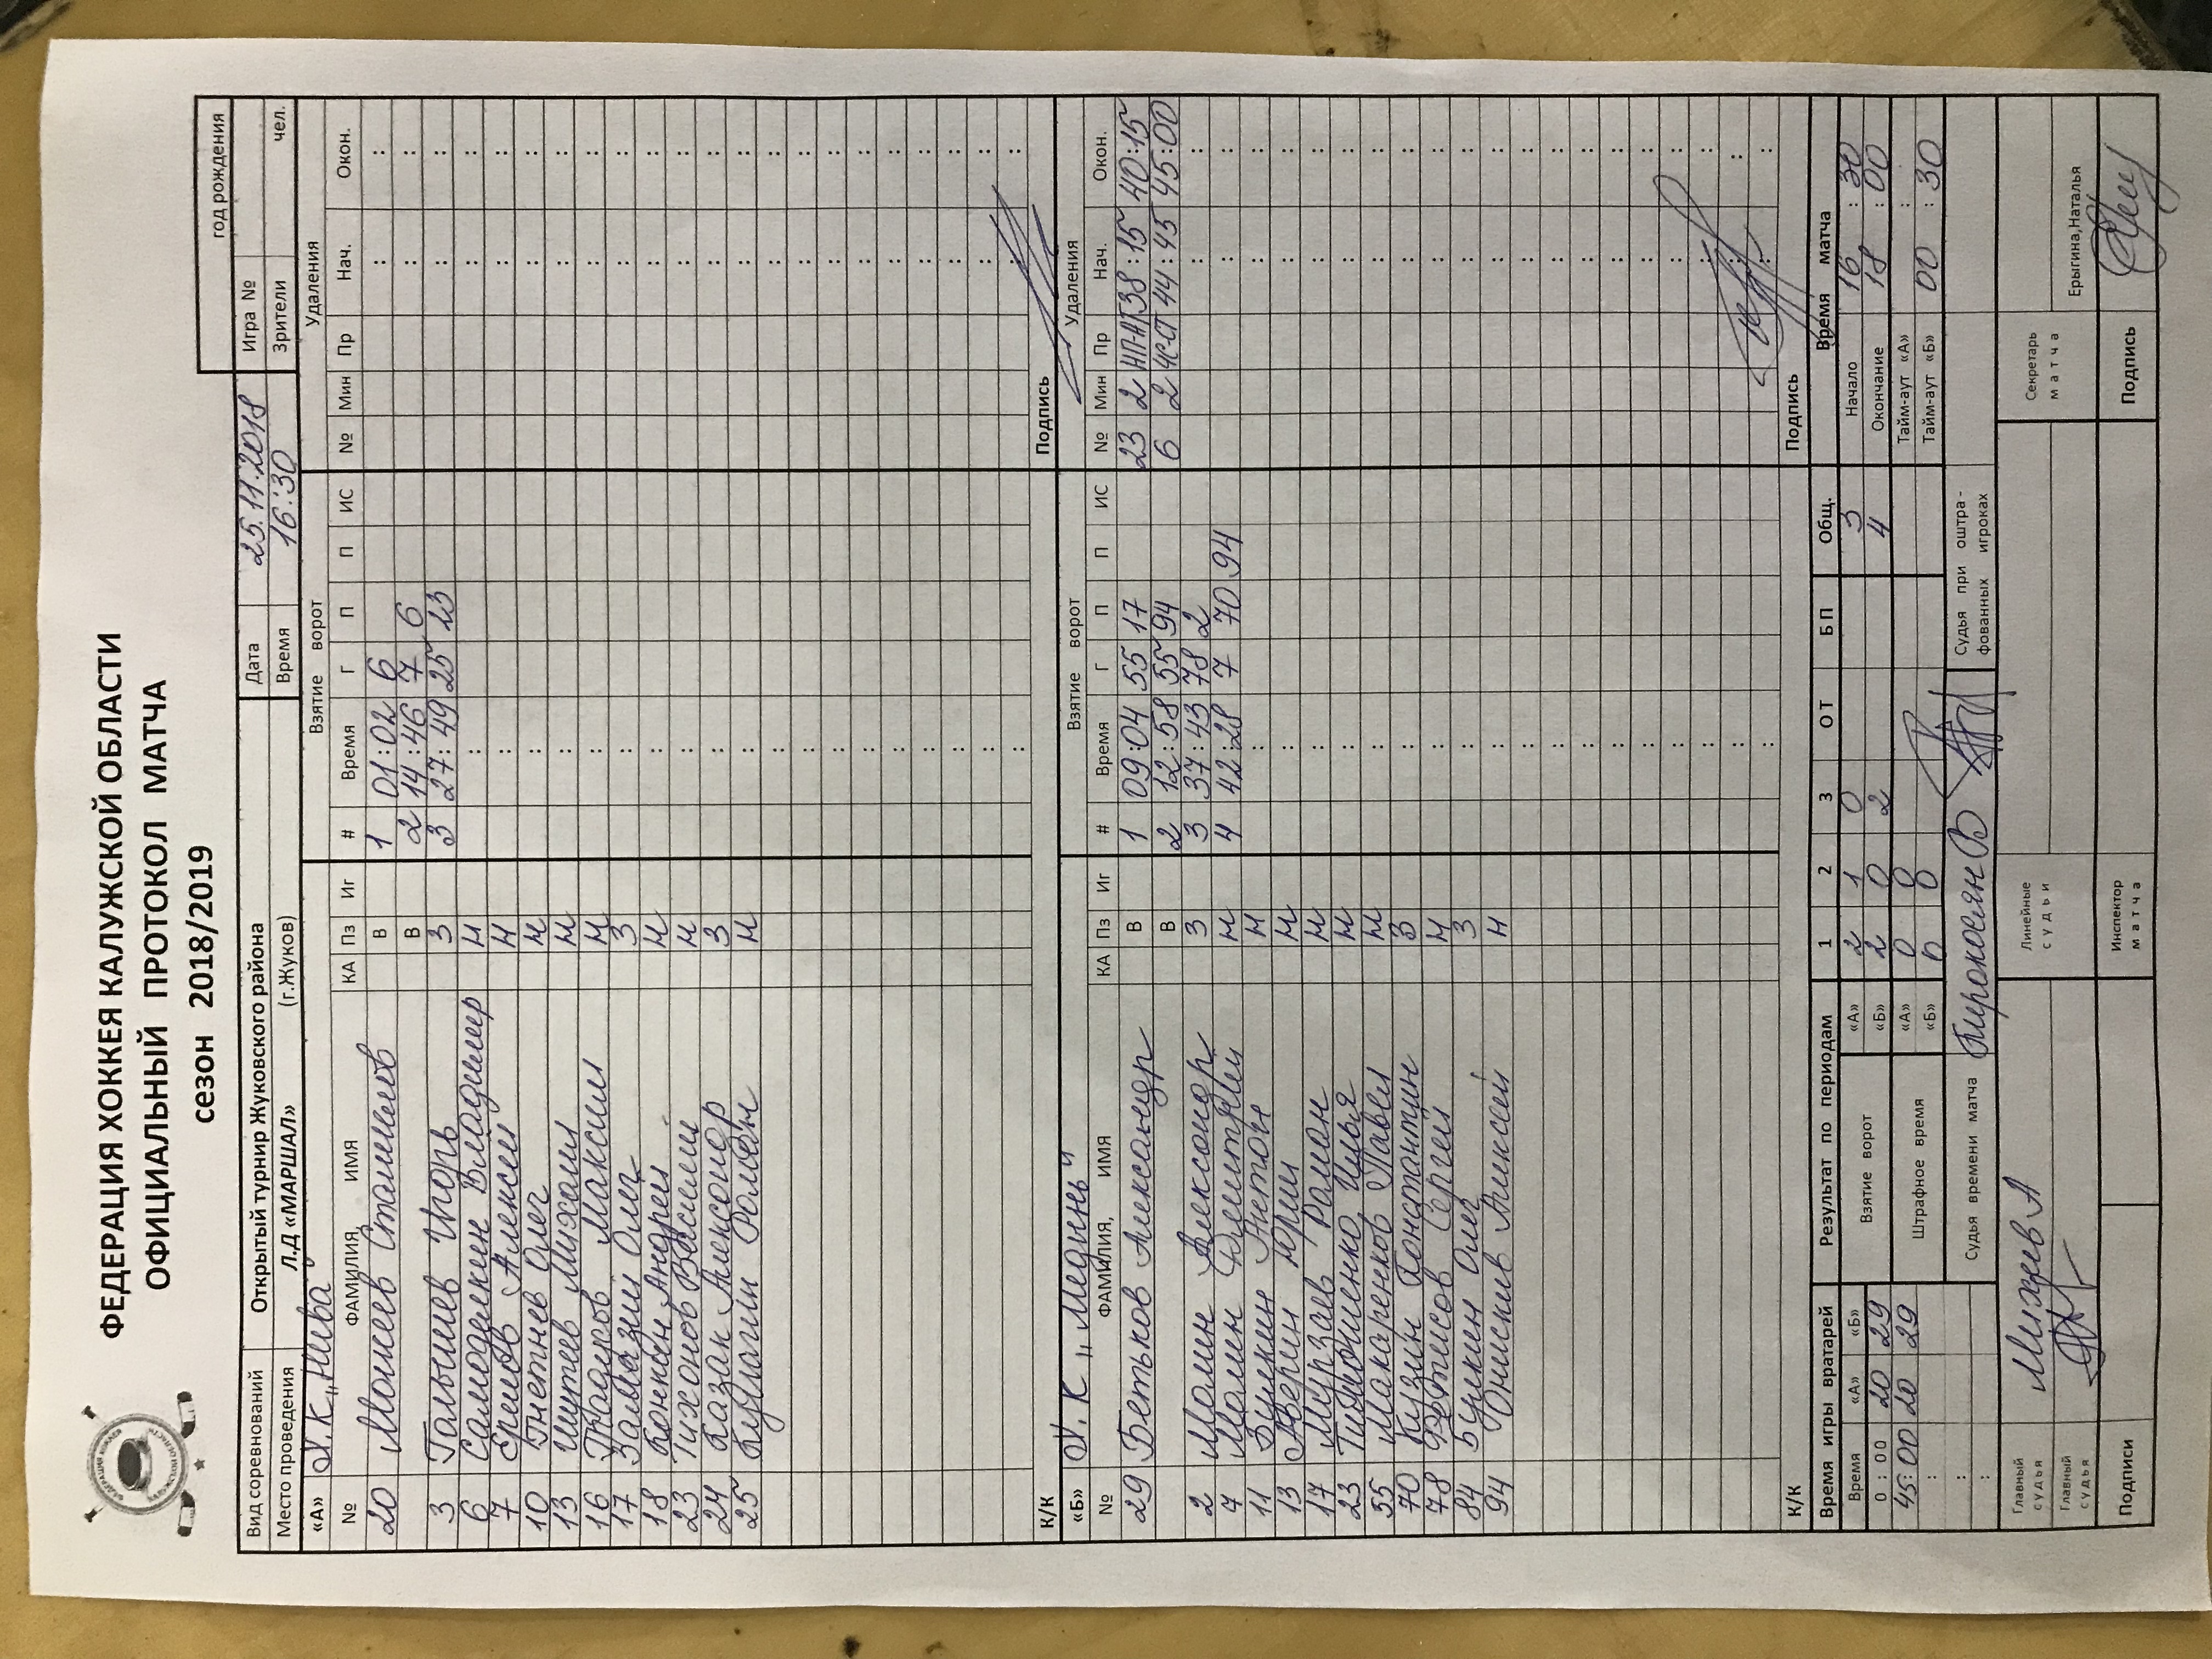 ФЕДЕРАЦИЯ ХОККЕЯ КАЛУЖСКОЙ ОБЛАСТИ
ОФИЦИАЛЬНЫЙ ПРОТОКОЛ МАТЧА
сезон 2018/2019
год рождения
Вид соревнований Открытый турнир Жуковского района Дата 25.11.2018 Игра №
Место проведения Л.Д «МАРШАЛ» (г.Жуков) Время 16:30 Зрители чел.
«А» Х.К. "Нива" Взятие ворот Удаления
№ ФАМИЛИЯ, ИМЯ КА Пз Иг # Время Г П П ИС № Мин Пр Нач. Окон.
20 Станислав В 1 01:02 6 : :
В 2 14:46 7 6 : :
3 Игорь З 3 27:49 25 23 : :
6 Самоделкин Владимир Н : : :
7 Алексей Н : : :
10 Олег Н : : :
13 Михаил Н : : :
16 Максим Н : : :
17 Олег З : : :
18 Андрей Н : : :
23 Тихонов Василий Н : : :
24 Казак Александр З : : :
25 Кулагин Роман Н : : :
К/К Подпись
«Б» Х.К "Медынь" Взятие ворот Удаления
№ ФАМИЛИЯ, ИМЯ КА Пз Иг # Время Г П П ИС № Мин Пр Нач. Окон.
29 Бетьков Александр В 1 09:04 55 17 23 2 НП-АТ 38:15 40:15
В 2 12:58 55 94 6 2 44:45 45:00
2 Малин Александр З 3 37:43 78 2 : :
7 Малин Дмитрий Н 4 42:28 7 70 94 : :
11 Антон Н : : :
13 Аверин Юрий Н : : :
17 Мирзаев Роман Н : : :
23 Тимониенко Илья Н : : :
55 Макаренков Павел Н : : :
70 Кузин Константин З : : :
78 Сергей Н : : :
84 Бункин Олег З : : :
94 Онискив Алексей Н : : :
К/К Подпись
Время игры вратарей Результат по периодам 1 2 3 ОТ БП Общ. Время матча
Время «А» «Б» Взятие ворот «А» 2 1 0 3 Начало 16:30
0:00 20 29 «Б» 2 0 2 4 Окончание 18:00
45:00 20 29 Штрафное время «А» 0 0 Тайм-аут «А» :
: «Б» 0 0 Тайм-аут «Б» 00:30
: Судья времени матча Киракосян В Судья при оштра-
: фованных игроках
Главный судья Михеев А Линейные судьи Секретарь матча
Главный судья Ерыгина,Наталья
Подписи Инспектор матча Подпись